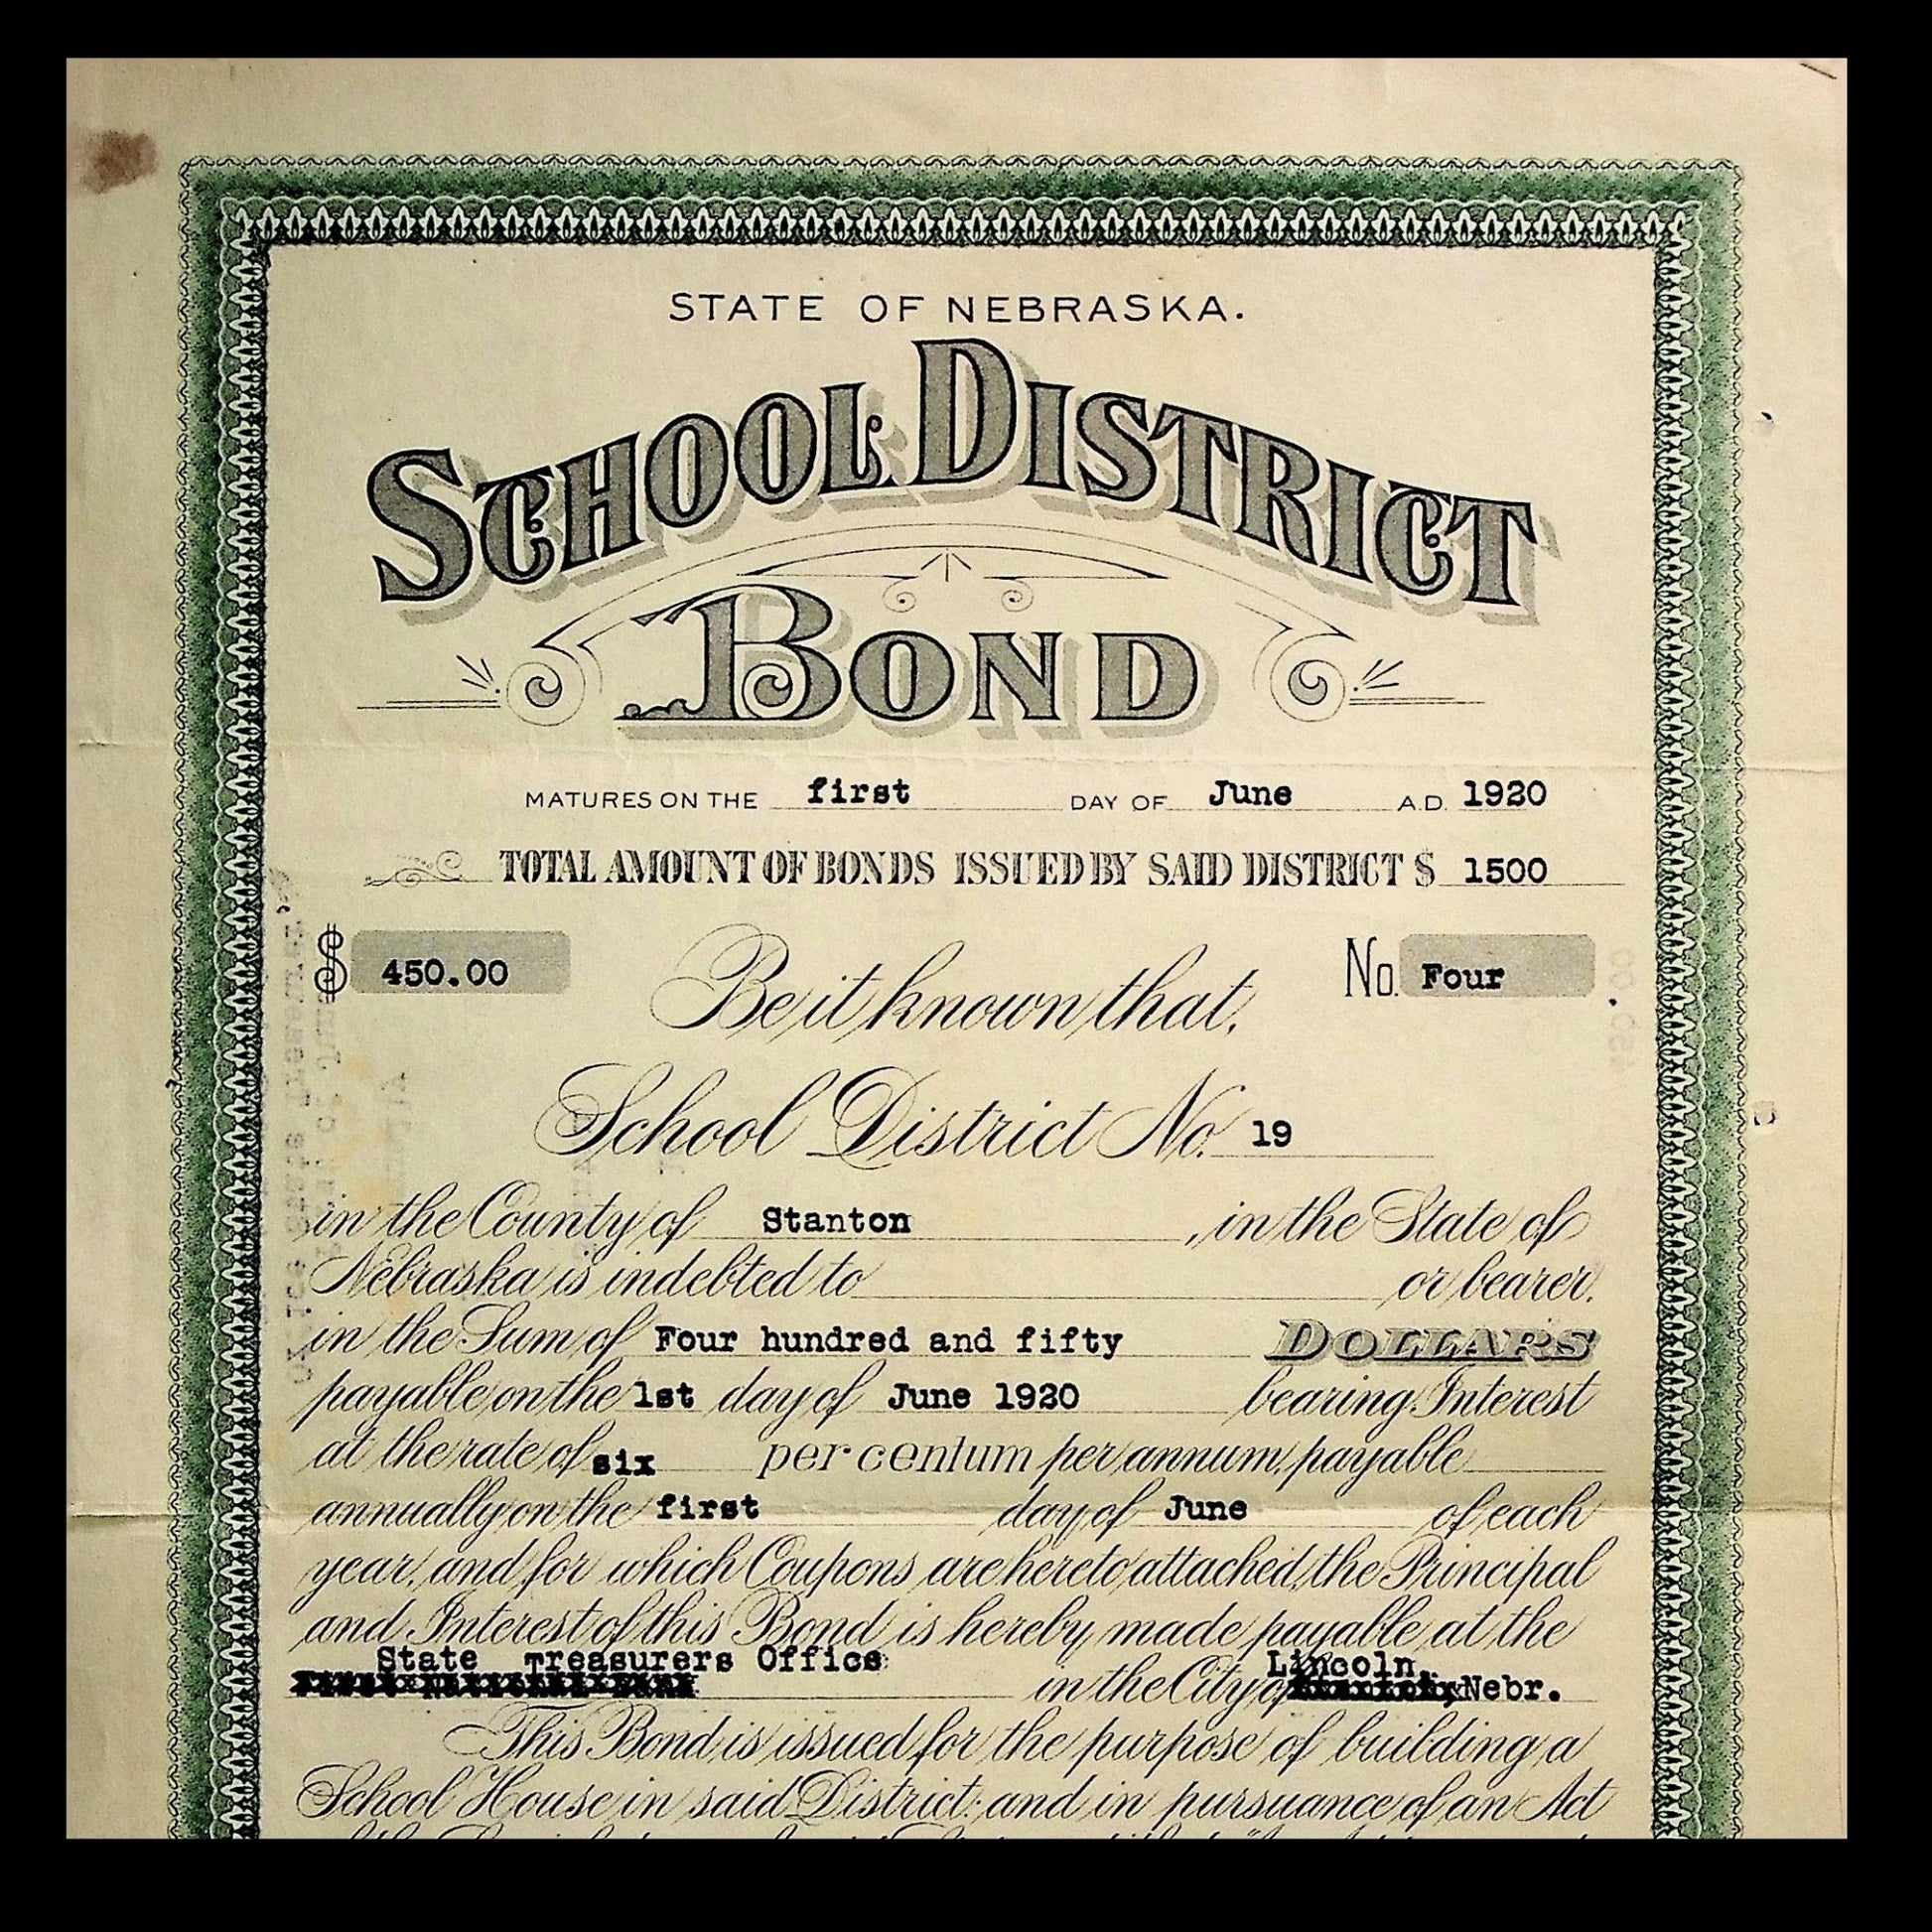 STATE OF NEBRASKA.
SCHOOL DISTRICT
BOND
MATURES ON THE first DAY OF June A.D. 1920
TOTAL AMOUNT OF BONDS ISSUED BY SAID DISTRICT $ 1500
$ 450.00 No. Four
Be it known that,
School District No. 19
in the County of Stanton, in the State of
Nebraska is indebted to or bearer,
in the Sum of Four hundred and fifty DOLLARS
payable on the 1st day of June 1920 bearing Interest
at the rate of six per centum per annum, payable
annually on the first day of June of each
year, and for which Coupons are hereto attached, the Principal
and Interest of this Bond is hereby made payable at the
State Treasurers Office in the City of Lincoln, Nebr.
This Bond is issued for the purpose of building a
School House in said District: and in pursuance of an Act